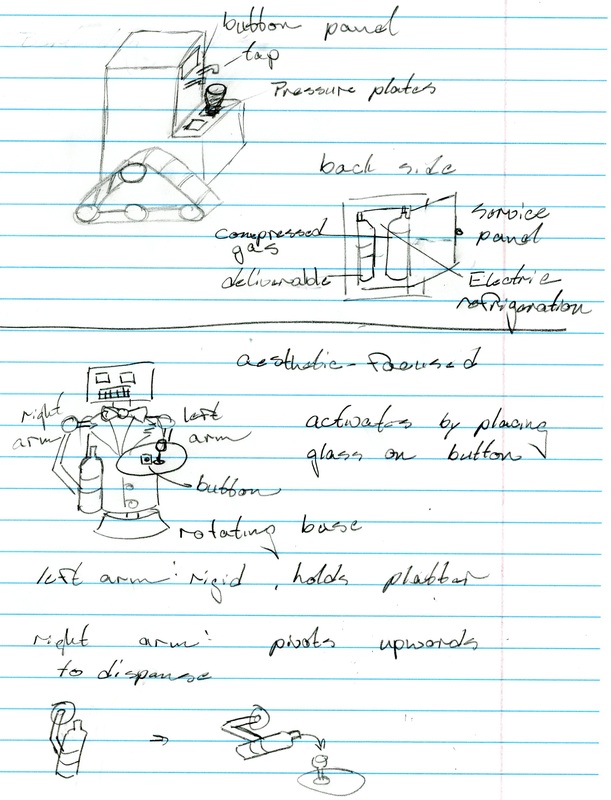 button panel
tap
Pressure plates
back side
compressed gas
deliverable
Service panel
Electric refrigeration
aesthetic-focused
right arm
left arm
activates by placing
glass on button
button
rotating base
left arm: rigid, holds platter
right arm: pivots upwards
to dispense